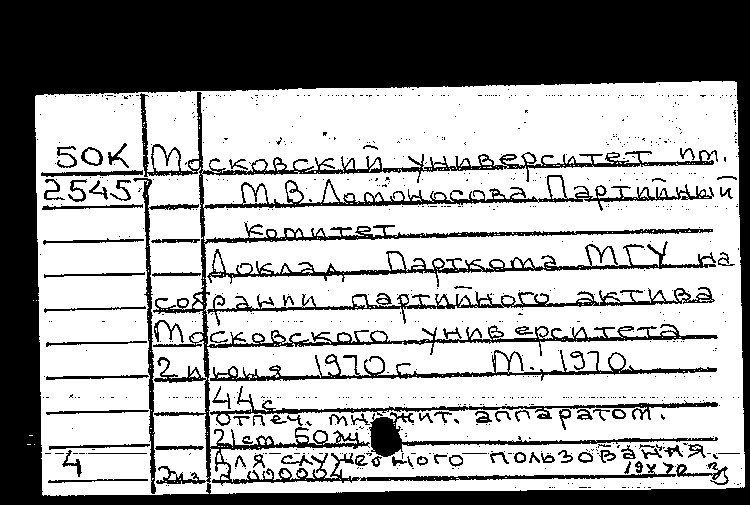 50К Московский университет им.
25457 М.В.Ломоносова. Партийный
комитет.
Доклад Парткома МГУ на
собрании партийного актива
Московского университета
2 июня 1970 г. М., 1970.
44 с.
отпеч. множит. аппаратом.
21 см. 50 экз
Для служебного пользования.
4 Экз. 2 000004 19X70